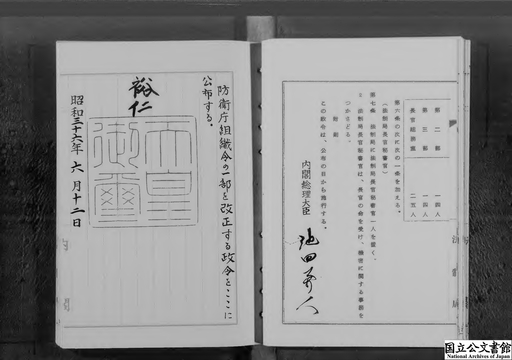 第二部 一四人
第三部 一四人
長官総務室 二五人
第六条の次に次の一条を加える。
(法制局長官秘書官)
第七条 法制局に法制局長官秘書官一人を置く。
2 法制局長官秘書官は、長官の命を受け、機密に関する事務を
つかさどる。
附則
この政令は、公布の日から施行する。
内閣総理大臣
池田勇人
防衛庁組織令の一部を改正する政令をここに
公布する。
裕仁
天皇御璽
昭和三十六年六月十二日
国立公文書館
National Archives of Japan